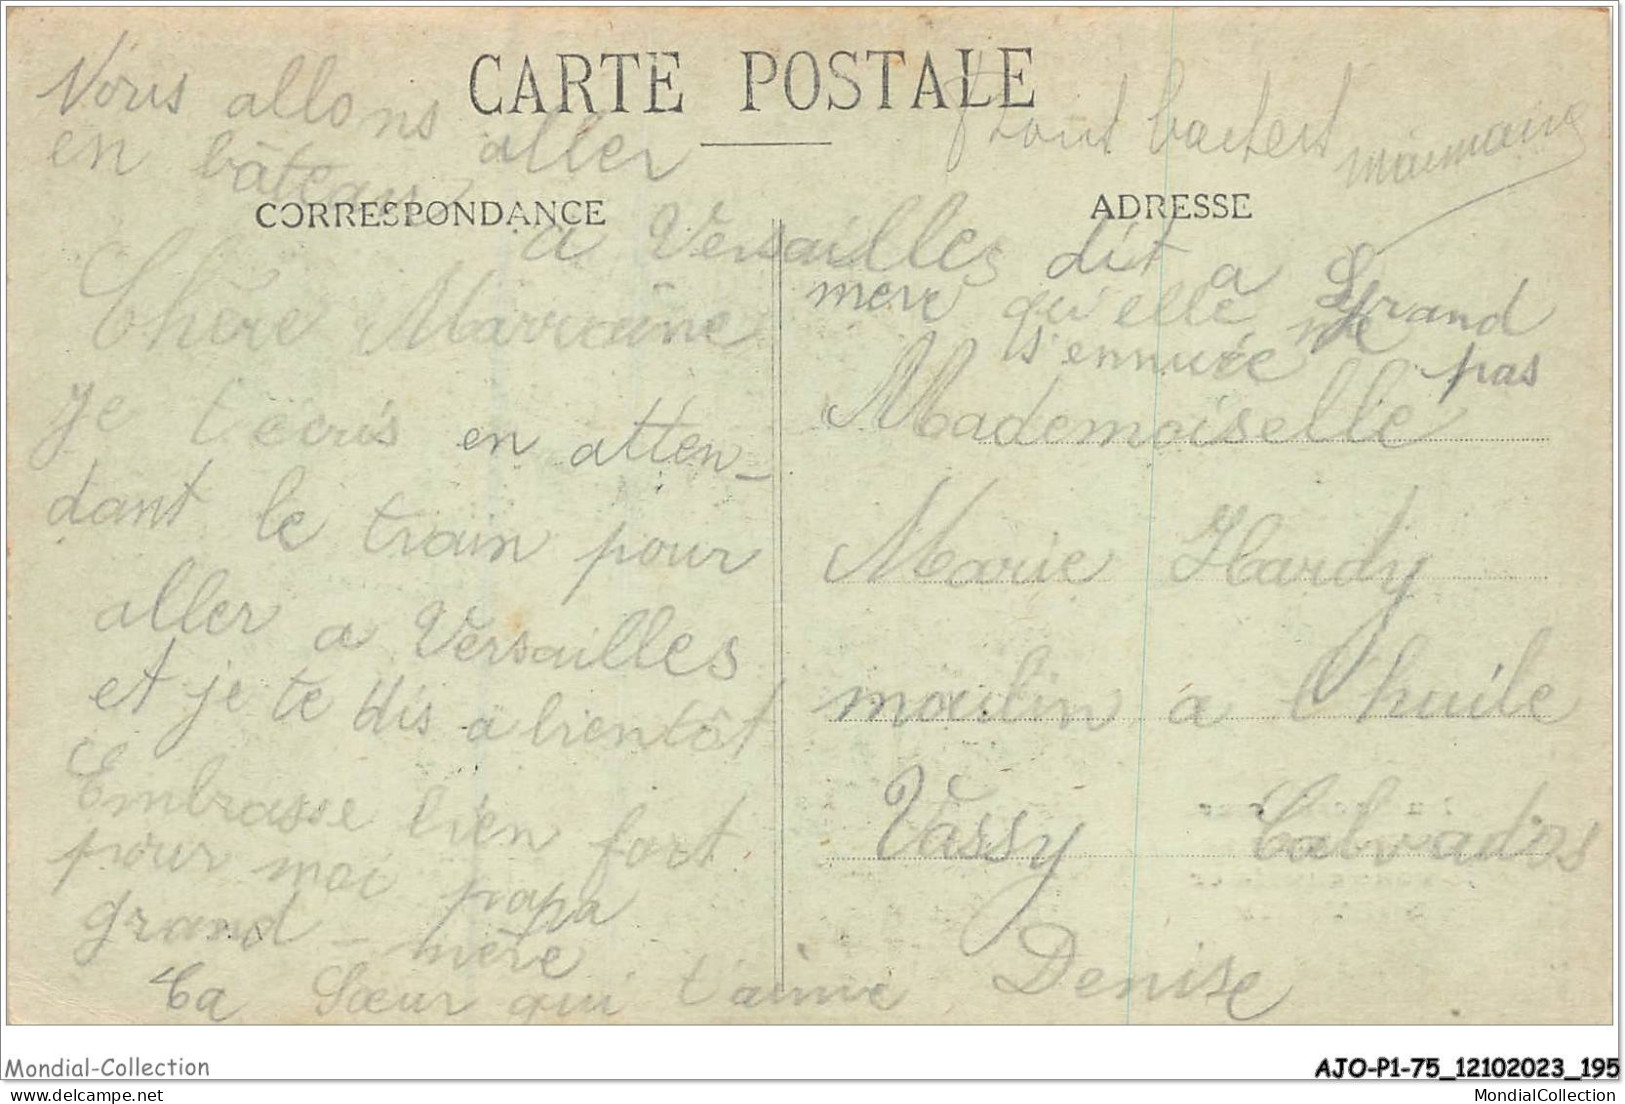 CARTE POSTALE
Nous allons aller
en bâteau
à Versailles dit a Grand
mere qu'elle ne
s'ennuie pas
CORRESPONDANCE
ADRESSE
Chère Marraine
Je t'écris en atten-
dant le train pour
aller a Versailles
et je te dis a bientôt
Embrasse bien fort
pour moi papa
grand-mère
Ta Sœur qui t'aime Denise
Mademoiselle
Marie Hardy
moulin a l'huile
Vassy Calvados
Mondial-Collection
AJO-P1-75_12102023_195
MondialCollection